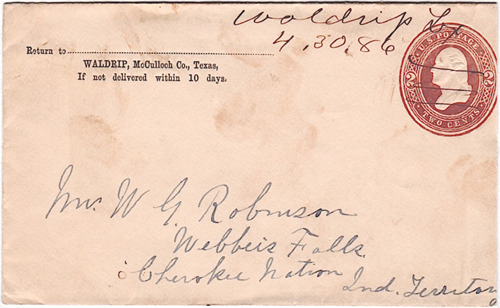 Waldrip Tx
4.30.86
Return to
WALDRIP, McCulloch Co., Texas,
If not delivered within 10 days.
U.S. POSTAGE
2 2
TWO CENTS
Mrs W G Robinson
Webbers Falls
Cherokee Nation
Ind. Territor